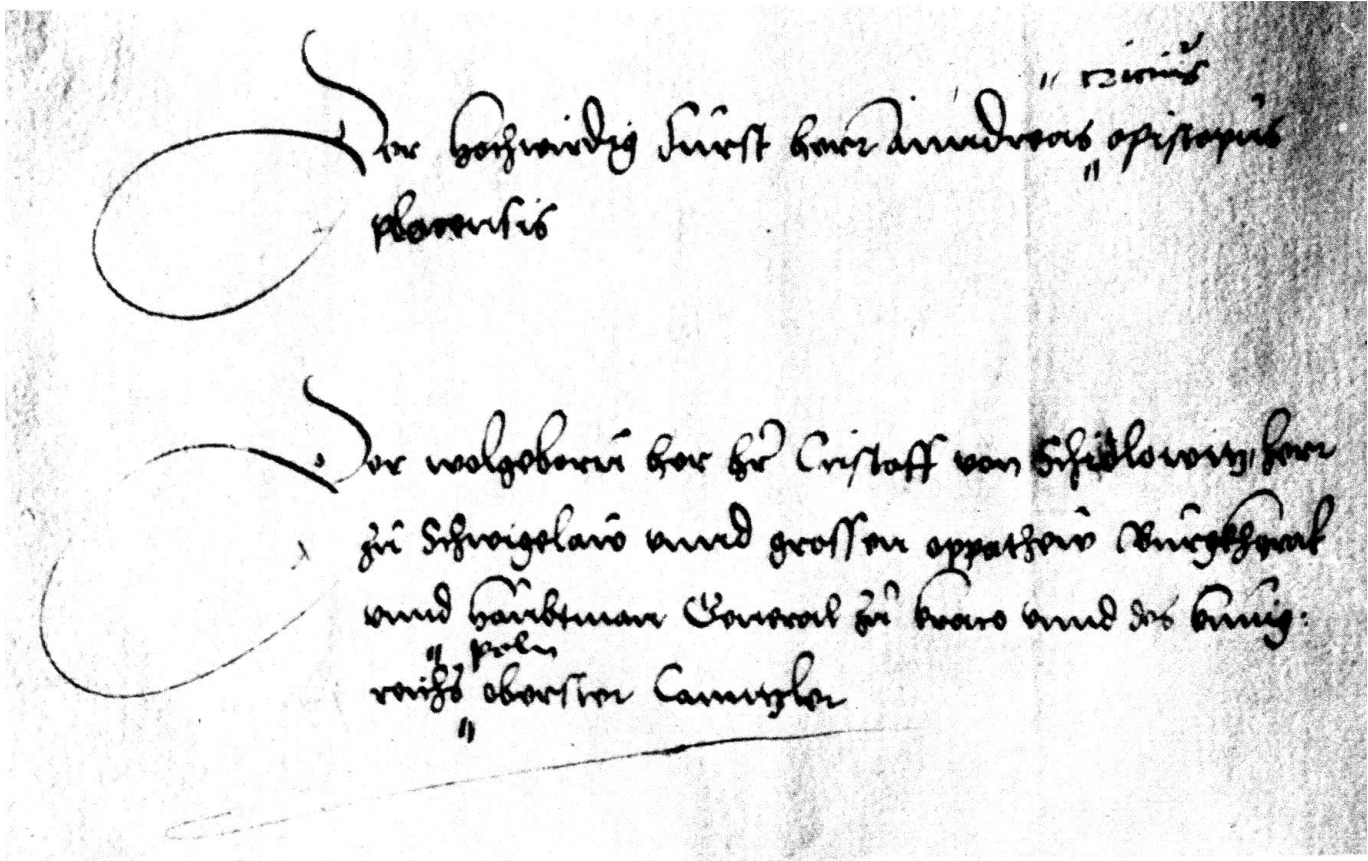 " cricius
Der hochwirdig Furst herr Anndreas " episcopus
plocensis
Der wolgeborn her her Cristoff von Schidlowitz, herr
zu Schmigelaw vnnd grossen oppathew Burgkhgraf
vnnd haubtman General zu kraco vnnd des kunig:
" poln
reichs " oberster Canntzler